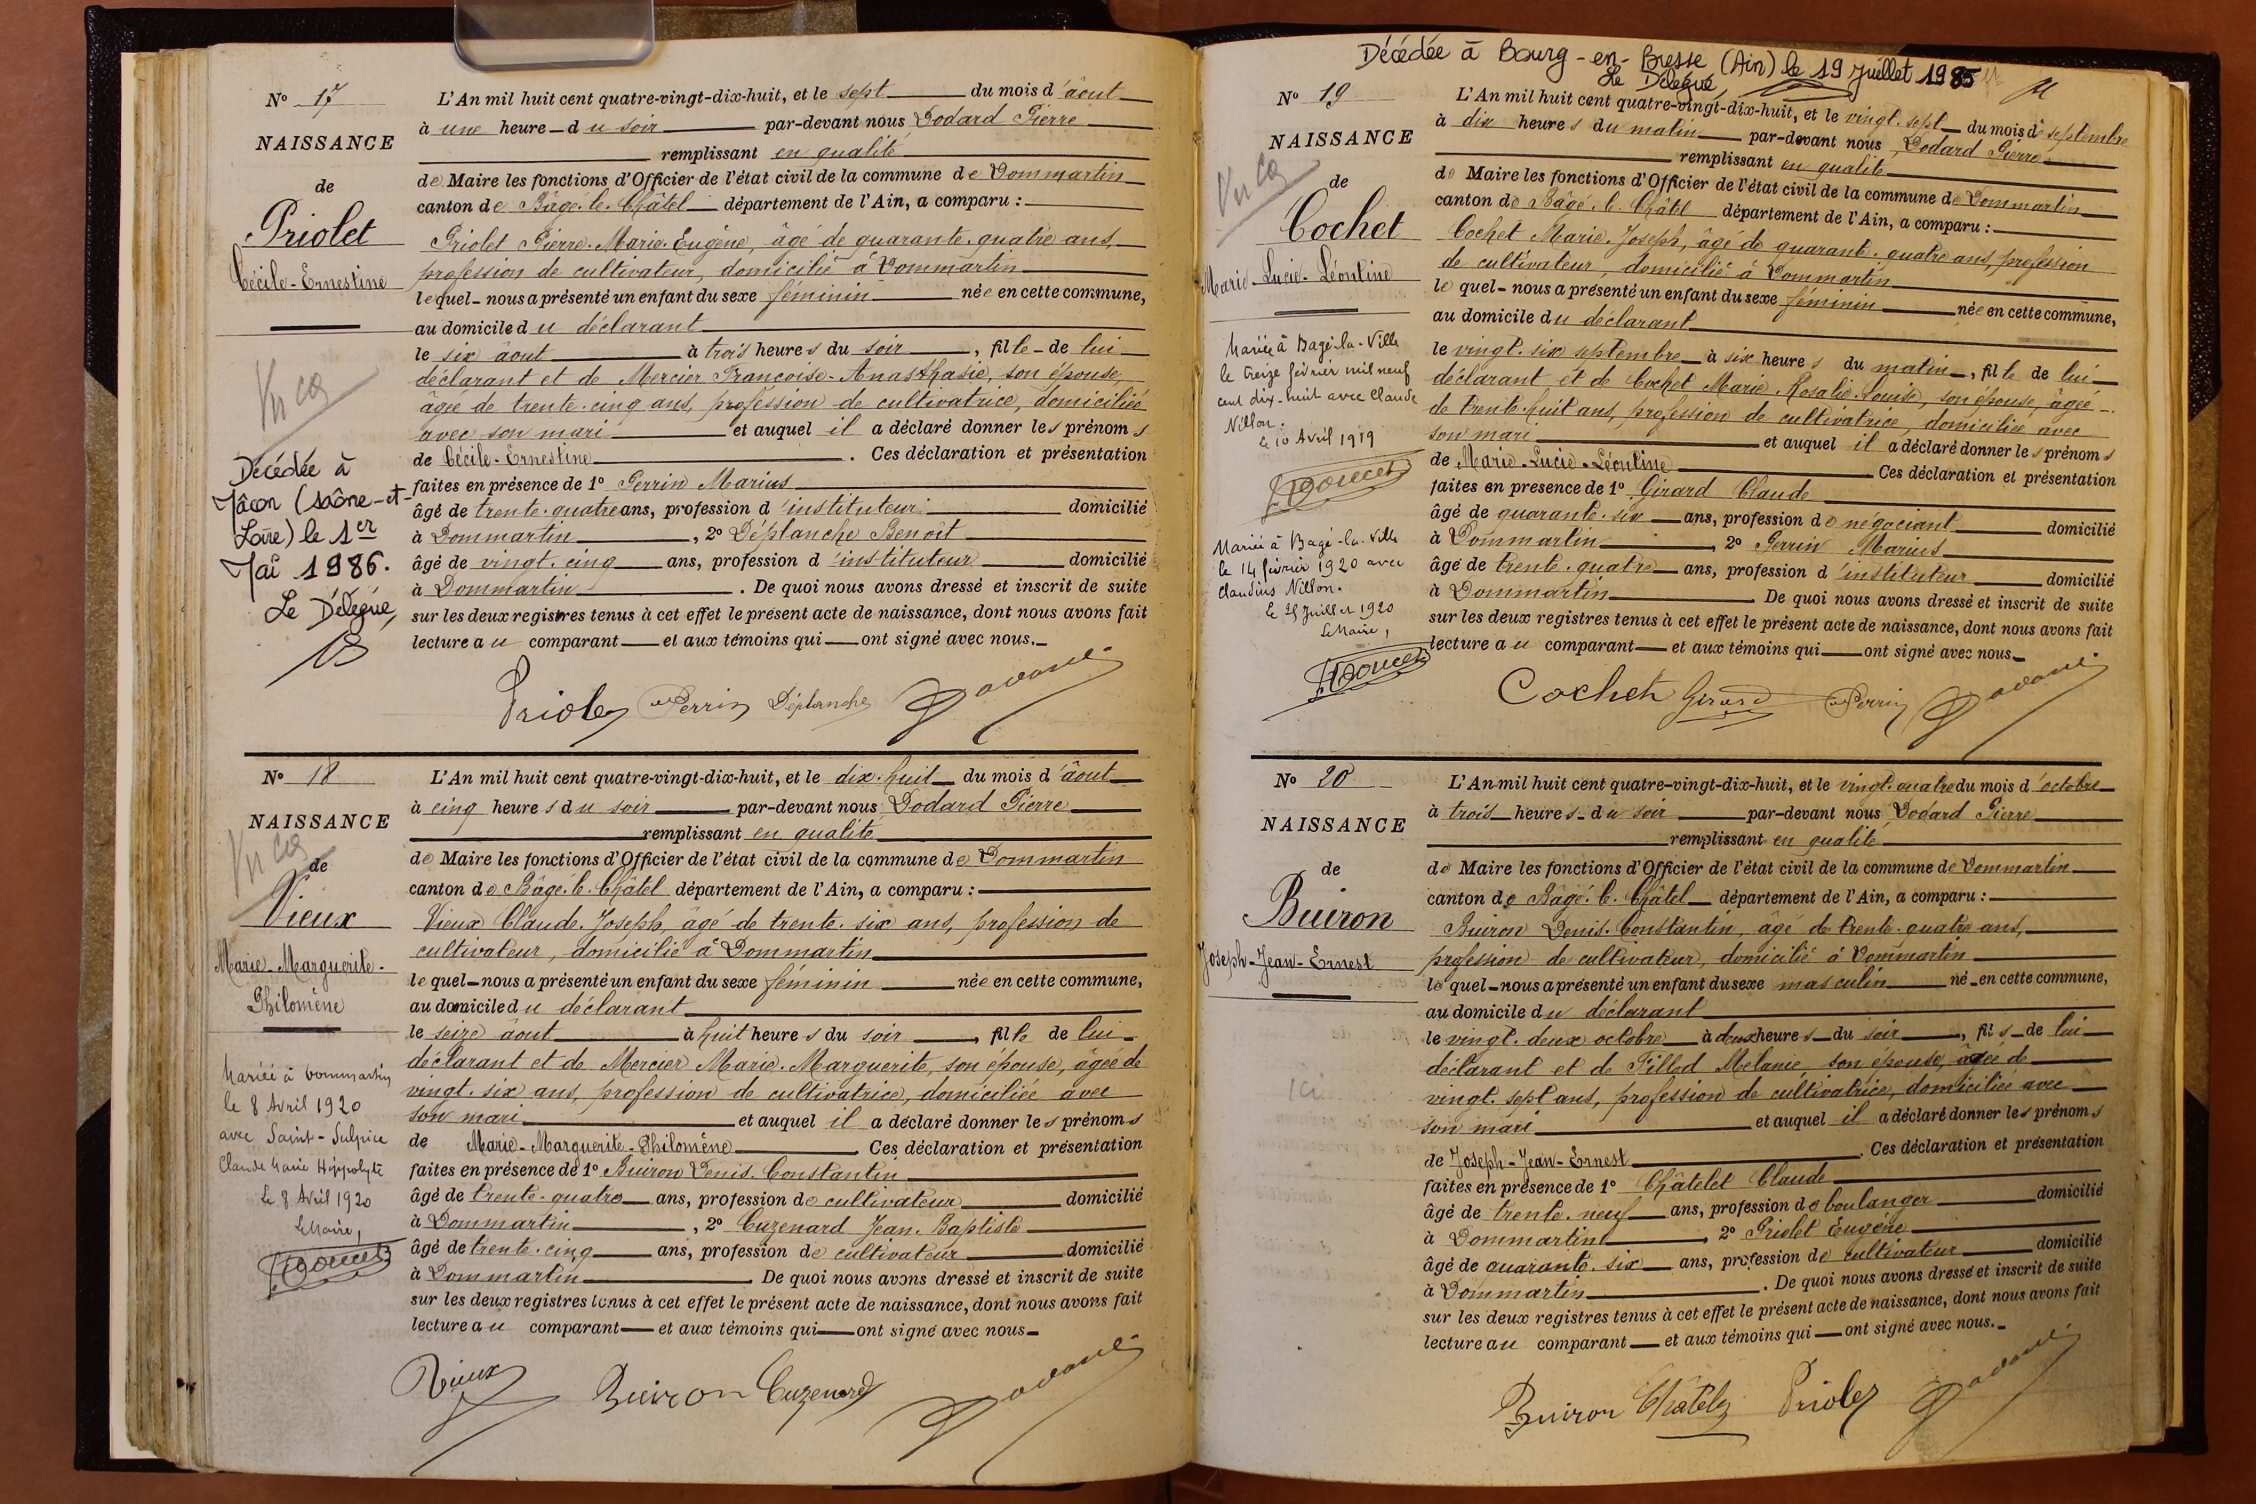 N° 17
NAISSANCE
de
Priolet
Cécile-Ernestine
Vu
Décédée à
Mâcon (Saône-et-
Loire) le 1er
Mai 1986.
Le Délégué,
L'An mil huit cent quatre-vingt-dix-huit, et le sept du mois d'âout
à une heure du soir par-devant nous Dodard Pierre
remplissant en qualité
de Maire les fonctions d'Officier de l'état civil de la commune de Dommartin
canton de Bâgé-le-Châtel département de l'Ain, a comparu :
Priolet Pierre-Marie-Eugène, âgé de quarante-quatre ans,
profession de cultivateur, domicilié à Dommartin
lequel nous a présenté un enfant du sexe féminin née en cette commune,
au domicile du déclarant
le six âout à trois heures du soir, fille de lui
déclarant et de Mercier Françoise-Anasthasie, son épouse,
âgée de trente-cinq ans, profession de cultivatrice, domiciliée
avec son mari et auquel il a déclaré donner les prénoms
de Cécile-Ernestine. Ces déclaration et présentation
faites en présence de 1° Perrin Marius
âgé de trente-quatre ans, profession d'instituteur domicilié
à Dommartin, 2° Déplanche Benoît
âgé de vingt-cinq ans, profession d'instituteur domicilié
à Dommartin. De quoi nous avons dressé et inscrit de suite
sur les deux registres tenus à cet effet le présent acte de naissance, dont nous avons fait
lecture au comparant et aux témoins qui ont signé avec nous.
Priolet Perrin Déplanche Dodard
N° 18
NAISSANCE
de
Vieux
Marie-Marguerite-
Philomène
Vu
Mariée à Dommartin
le 8 Avril 1920
avec Saint-Sulpice
Claude Marie Hippolyte
Le 8 Avril 1920
Le Maire,
L'An mil huit cent quatre-vingt-dix-huit, et le dix-huit du mois d'âout
à cinq heures du soir par-devant nous Dodard Pierre
remplissant en qualité
de Maire les fonctions d'Officier de l'état civil de la commune de Dommartin
canton de Bâgé-le-Châtel département de l'Ain, a comparu :
Vieux Claude-Joseph, âgé de trente-six ans, profession de
cultivateur, domicilié à Dommartin
lequel nous a présenté un enfant du sexe féminin née en cette commune,
au domicile du déclarant
le seize âout à huit heures du soir, fille de lui
déclarant et de Mercier Marie-Marguerite, son épouse, âgée de
vingt-six ans, profession de cultivatrice, domiciliée avec
son mari et auquel il a déclaré donner les prénoms
de Marie-Marguerite-Philomène. Ces déclaration et présentation
faites en présence de 1° Buiron Denis-Constantin
âgé de trente-quatre ans, profession de cultivateur domicilié
à Dommartin, 2° Cuzenard Jean-Baptiste
âgé de trente-cinq ans, profession de cultivateur domicilié
à Dommartin. De quoi nous avons dressé et inscrit de suite
sur les deux registres tenus à cet effet le présent acte de naissance, dont nous avons fait
lecture au comparant et aux témoins qui ont signé avec nous
Vieux Buiron Cuzenard Dodard
Décédée à Bourg-en-Bresse (Ain) le 19 Juillet 1985
Le Délégué,
N° 19
NAISSANCE
de
Cochet
Marie-Lucie-Léontine
Vu
Mariée à Bagé-la-Ville
le treize février mil neuf
cent dix-huit avec Claude
Nillon.
Le 10 Avril 1919
Mariée à Bagé-la-Ville
le 14 février 1920 avec
Claudius Nillon.
Le 25 Juillet 1920
Le Maire,
L'An mil huit cent quatre-vingt-dix-huit, et le vingt-sept du mois de septembre
à dix heures du matin par-devant nous Dodard Pierre
remplissant en qualité
de Maire les fonctions d'Officier de l'état civil de la commune de Dommartin
canton de Bâgé-le-Châtel département de l'Ain, a comparu :
Cochet Marie-Joseph, âgé de quarante-quatre ans, profession
de cultivateur, domicilié à Dommartin
lequel nous a présenté un enfant du sexe féminin née en cette commune,
au domicile du déclarant
le vingt-six septembre à six heures du matin, fille de lui
déclarant et de Cochet Marie-Rosalie-Louise, son épouse, âgée
de trente-huit ans, profession de cultivatrice, domiciliée avec
son mari et auquel il a déclaré donner les prénoms
de Marie-Lucie-Léontine Ces déclaration et présentation
faites en présence de 1° Girard Claude
âgé de quarante-six ans, profession de négociant domicilié
à Dommartin, 2° Perrin Marius
âgé de trente-quatre ans, profession d'instituteur domicilié
à Dommartin De quoi nous avons dressé et inscrit de suite
sur les deux registres tenus à cet effet le présent acte de naissance, dont nous avons fait
lecture au comparant et aux témoins qui ont signé avec nous
Cochet Girard Perrin Dodard
N° 20
NAISSANCE
de
Buiron
Joseph-Jean-Ernest
L'An mil huit cent quatre-vingt-dix-huit, et le vingt-quatre du mois d'octobre
à trois heures du soir par-devant nous Dodard Pierre
remplissant en qualité
de Maire les fonctions d'Officier de l'état civil de la commune de Dommartin
canton de Bâgé-le-Châtel département de l'Ain, a comparu :
Buiron Denis-Constantin, âgé de trente-quatre ans,
profession de cultivateur, domicilié à Dommartin
lequel nous a présenté un enfant du sexe masculin né en cette commune,
au domicile du déclarant
le vingt-deux octobre à deux heures du soir, fils de lui
déclarant et de Fillod Mélanie, son épouse, âgée de
vingt-sept ans, profession de cultivatrice, domiciliée avec
son mari et auquel il a déclaré donner les prénoms
de Joseph-Jean-Ernest. Ces déclaration et présentation
faites en présence de 1° Châtelet Claude
âgé de trente-neuf ans, profession de boulanger domicilié
à Dommartin, 2° Priolet Eugène
âgé de quarante-six ans, profession de cultivateur domicilié
à Dommartin. De quoi nous avons dressé et inscrit de suite
sur les deux registres tenus à cet effet le présent acte de naissance, dont nous avons fait
lecture au comparant et aux témoins qui ont signé avec nous.
Buiron Châtelet Priolet Dodard